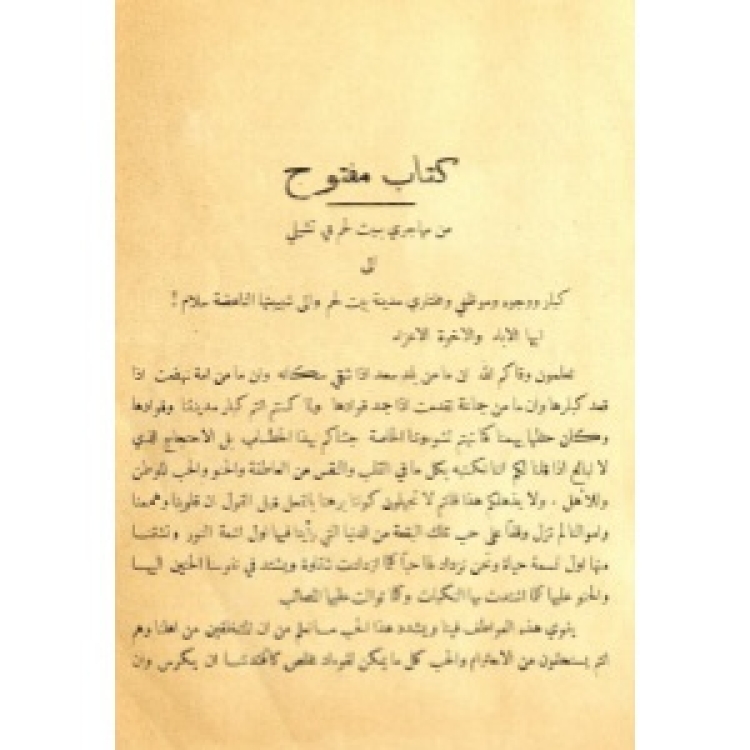 كتاب مفتوح
من مهاجري بيت لحم في تشيلي
الى
كبار ووجوه وموظفي ومختاري مدينة بيت لحم والى شبيبتها الناهضة سلام !
ايها الاباء والاخوة الاعزاء
تعلمون وقاكم الله ان ما من بلد سعد اذا شقي سكانه وان ما من امة نهضت اذا
قعد كبارها وان ما من جماعة تقدمت اذا جمد قوادها ولما كنتم انتم كبار مدينتنا وقوادها
وكان حقها يهمنا كما تهتم لشؤوننا الخاصة جئناكم بهذا الخطاب بل الاحتجاج الذي
لا نبالغ اذا قلنا لكم اننا نكتبه بكل ما في القلب والنفس من العاطفة والحنو والحب للوطن
وللأهل . ولا يذهلكم هذا فانتم لا تجهلون كوننا برهنا بالفعل قبل القول ان قلوبنا وهممنا
واموالنا لم تزل وقفاً على حب تلك البقعة من الدنيا التي رأينا فيها اول اشعة النور ونشقنا
منها اول نسمة حياة ونحن نزداد لها حباً كلما ازدادت شقاوة ويشتد في نفوسنا الحنين اليها
والحنو عليها كلما اشتدت بها النكبات وكلما توالت عليها المصائب
يقوي هذه العواطف فينا ويشدد هذا الحب مسانعلم من ان المتخلفين من اهلنا وهم
انتم يستحقون من الاحترام والحب كل ما يمكن لفؤاد مخلص كأفئدتنا ان يكرس وان